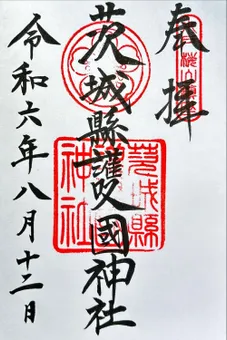 奉拝
茨城縣護國神社
令和六年八月十二日
茨城縣護國神社